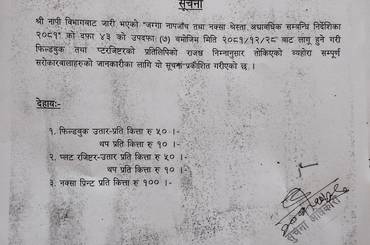 सूचना
श्री नापी विभागबाट जारी भएको "जग्गा नापजाँच तथा नक्सा श्रेस्ता अद्यावधिक सम्बन्धि निर्देशिका
२०८१" को दफा ४३ को उपदफा (७) बमोजिम मिति २०८१/१२/२८ बाट लागू हुने गरी
फिल्डबुक तथा प्टरजिष्टरको प्रतिलिपिको राजश्व निम्नानुसार तोकिएको व्यहोरा सम्पूर्ण
सरोकारवालाहरुको जानकारीका लागि यो सूचना प्रकाशित गरीएको छ ।
देहायः-
१. फिल्डबुक उतार-प्रति कित्ता रु ५० ।-
थप प्रति कित्ता रु १० ।-
२. प्लट रजिष्टर-उतार प्रति कित्ता रु ५० ।-
थप प्रति कित्ता रु १० ।-
३. नक्सा प्रिन्ट प्रति कित्ता रु १०० ।-
सूचना अधिकारी